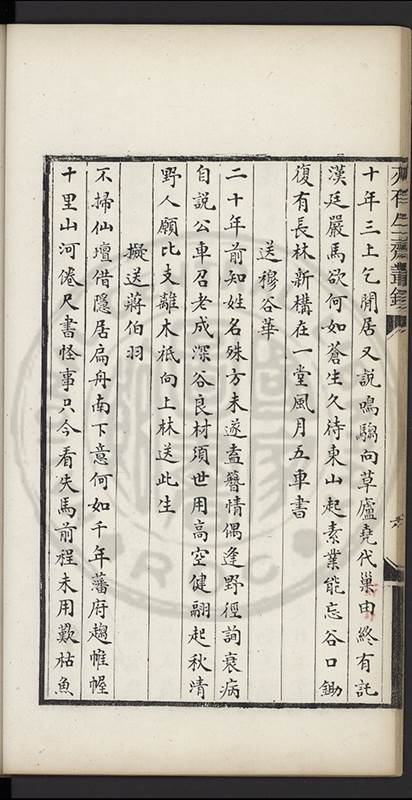 十年三上乞閒居又說鳴騶向草廬堯代巢由終有託
漢廷嚴馬欲何如蒼生久待東山起素業能忘谷口鋤
復有長林新構在一堂風月五車書
送穆谷華
二十年前知姓名殊方未遂盍簪情偶逢野徑詢衰病
自說公車召老成深谷良材須世用高空健翮起秋晴
野人願比支離木祗向上林送此生
擬送蔣伯羽
不掃仙壇借隱居扁舟南下意何如千年藩府趨帷幄
十里山河倦尺書怪事只今看失馬前程未用歎枯魚